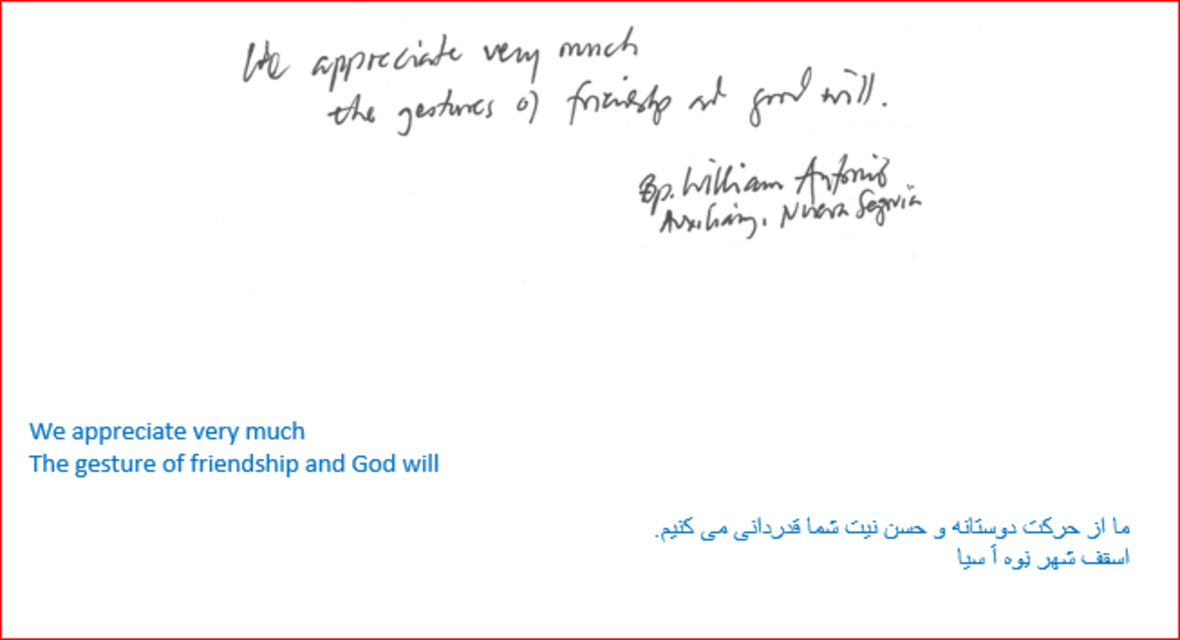 We appreciate very much
the gestures of friendship and good will.
Bp. William Antonio
Auxiliary, Nueva Segovia
We appreciate very much
The gesture of friendship and God will
ما از حرکت دوستانه و حسن نیت شما قدردانی می کنیم.
اسقف شهر نوه أ سیا